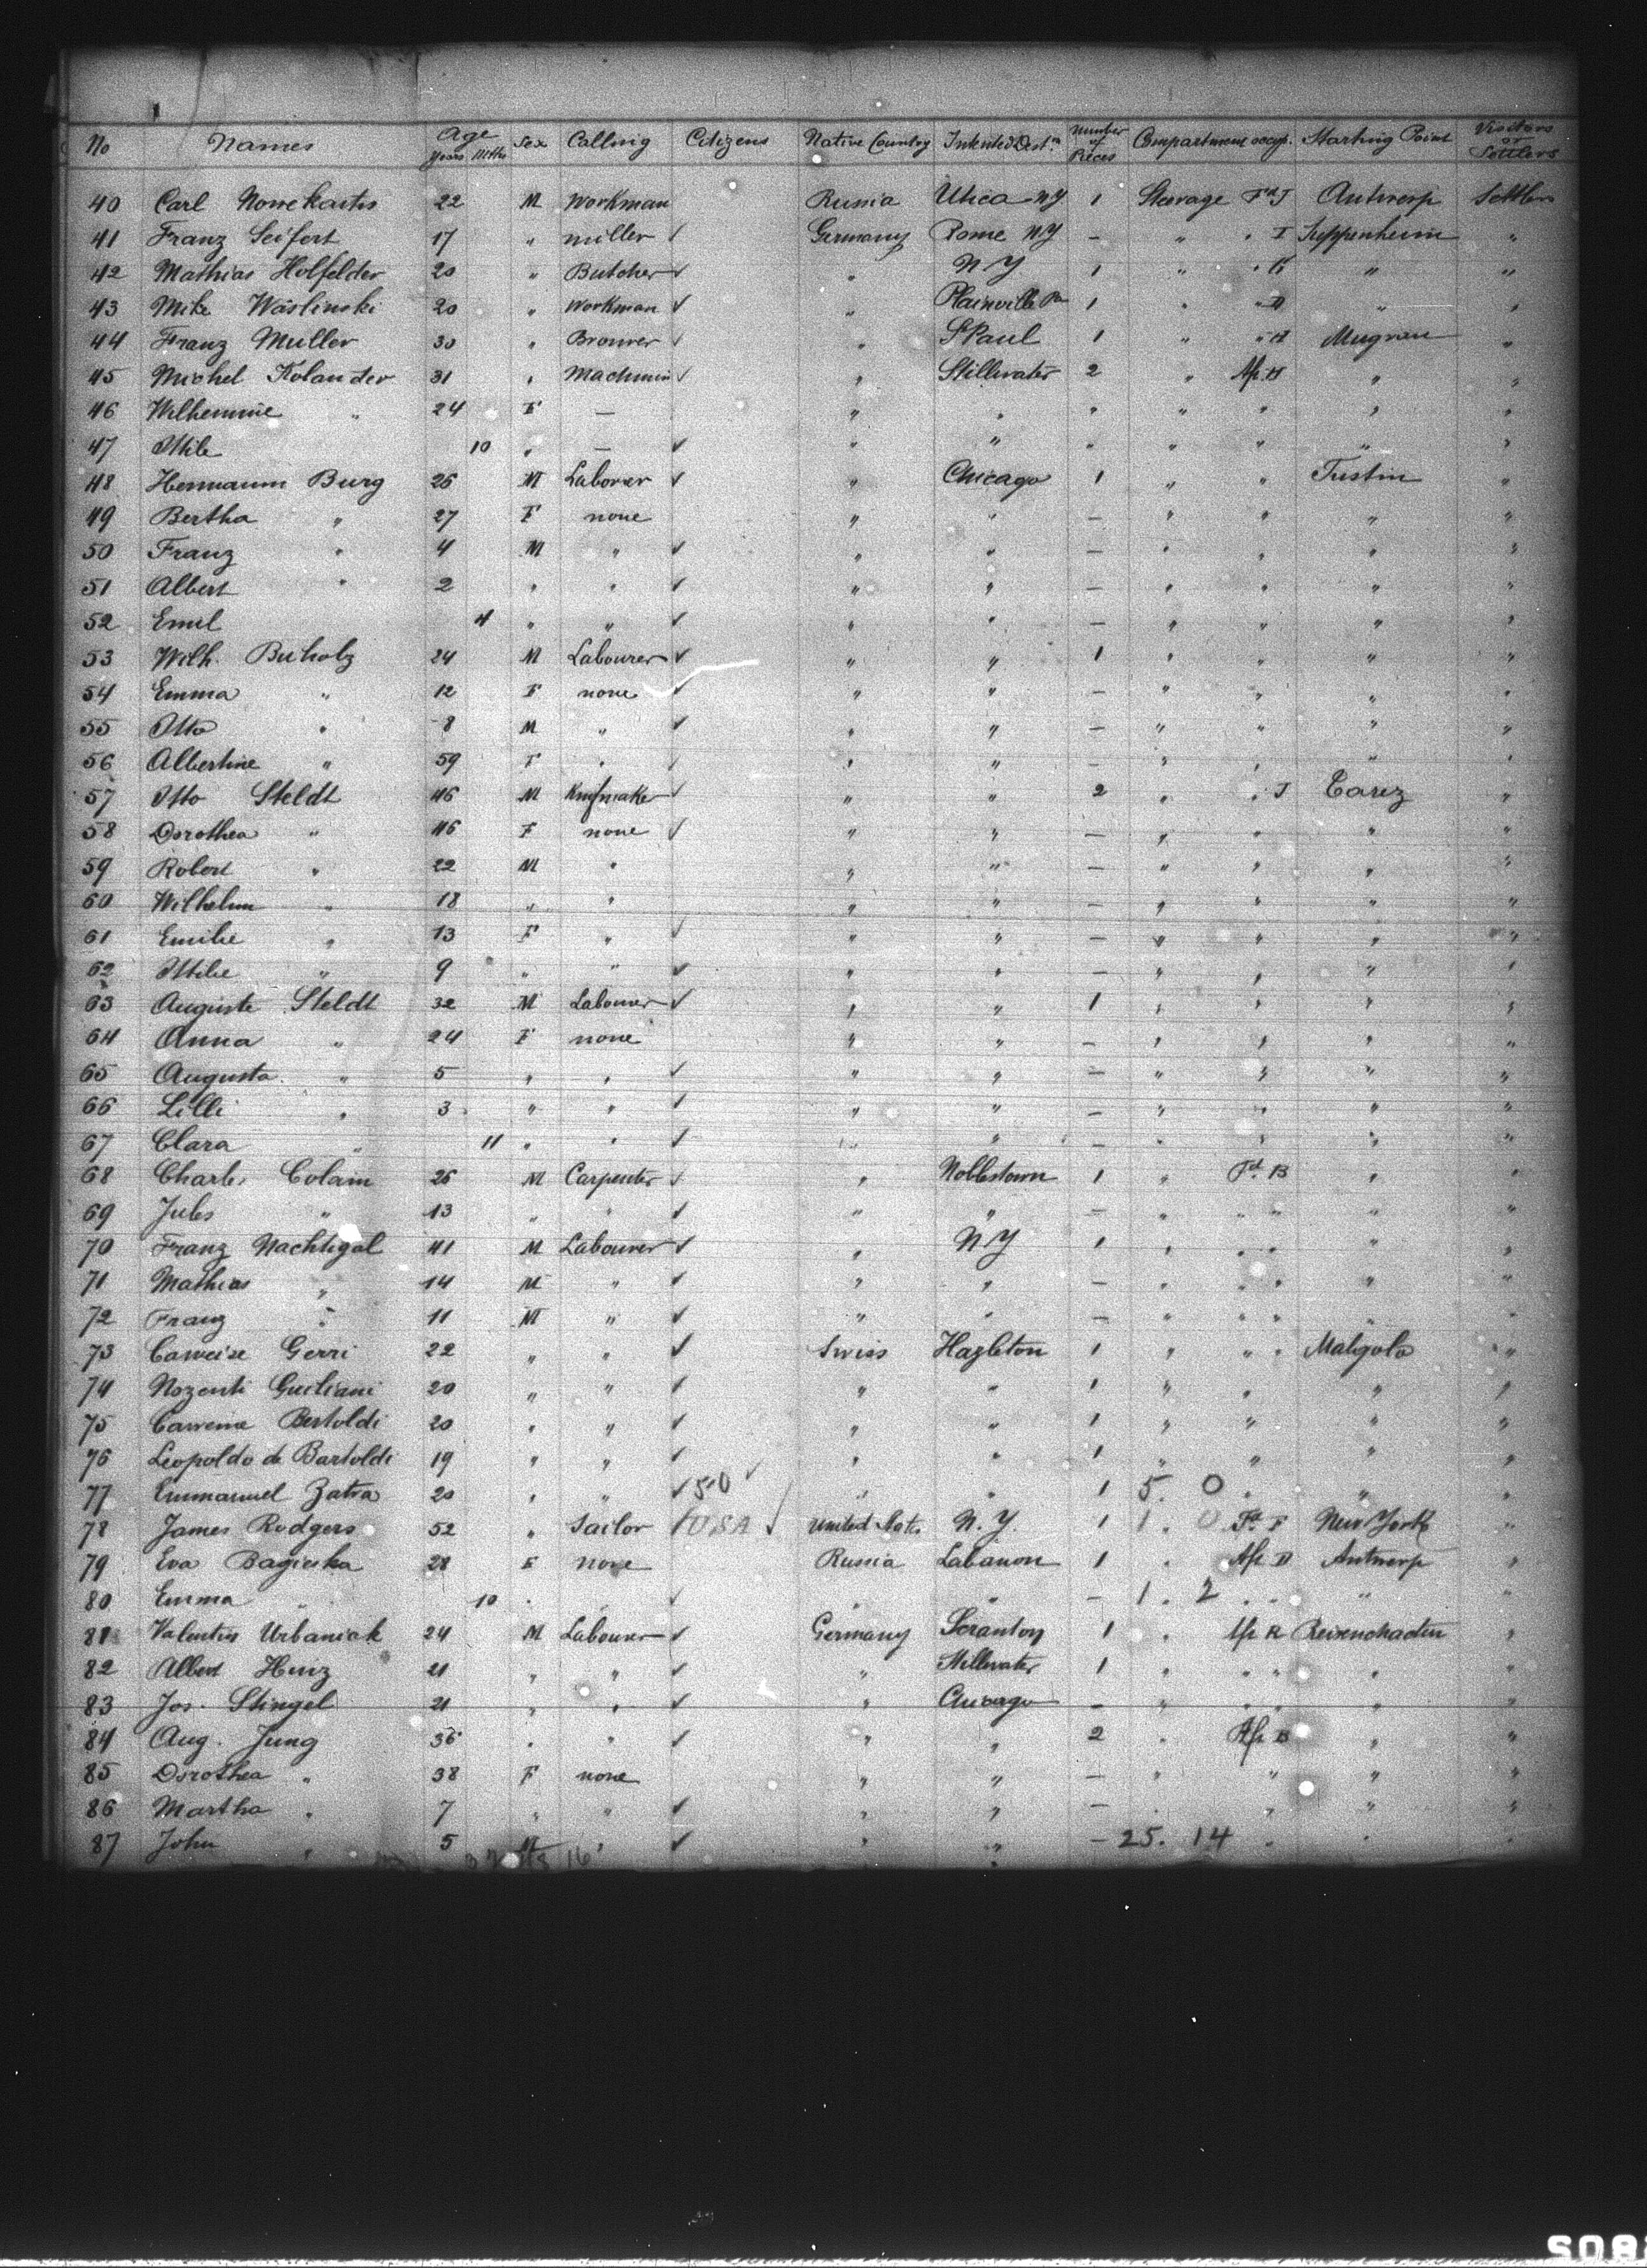 No Names Age Years Mths Sex Calling Citizens Native Country Intented Dest.n Number of Pieces Compartment occup. Starting Point Visitors or Settlers
40 Carl 22 M Workman Russia Utica NY 1 Steerage Fd J Antwerp Settlers
41 Franz Seifert 17 " miller ✓ Germany Rome NY — " " I "
42 Mathias Holfelder 20 " Butcher ✓ " NY 1 " " " "
43 Mike Waslinski 20 " Workman ✓ " Plainville Pa 1 " " " "
44 Franz Muller 30 " Brower ✓ " St Paul 1 " " H Mugrau "
45 Michel Kolander 31 " ✓ " Stillwater 2 " Af. H " "
46 Wilhemine " 24 F — " " " " " " "
47 Ottile 10 " — ✓ " " " " " " "
48 Hermann Burg 26 M Laborer ✓ " Chicago 1 " " Tustin "
49 Bertha " 27 F none " " — " " " "
50 Franz " 4 M " ✓ " " — " " " "
51 Albert " 2 " " ✓ " " — " " " "
52 Emil 4 " " ✓ " " — " " " "
53 Wilh. Buholz 24 M Labourer ✓ " " 1 " " " "
54 Emma " 12 F none ✓ " " — " " " "
55 Otto " 8 M " ✓ " " — " " " "
56 Albertine " 59 F " ✓ " " — " " " "
57 Otto Steldt 46 M ✓ " " 2 " " J "
58 Dorothea " 46 F none ✓ " " — " " " "
59 Robert " 22 M " " " — " " " "
60 Wilhelm " 18 " " " " — " " " "
61 Emilie " 13 F " ✓ " " — " " " "
62 Ottilie " 9 " " ✓ " " — " " " "
63 Auguste Steldt 32 M Labourer ✓ " " 1 " " " "
64 Anna " 24 F none " " — " " " "
65 Augusta " 5 " " ✓ " " — " " " "
66 Lilli " 3 " " ✓ " " — " " " "
67 Clara " 11 " " ✓ " " — " " " "
68 Charles Colain 26 M Carpenter ✓ " Noblestown 1 " Fd. B " "
69 Jules " 13 " " ✓ " " — " " " " "
70 Franz Nachtigal 41 M Labourer ✓ " NY 1 " " " " "
71 Mathias " 14 M " ✓ " " — " " " " "
72 Franz " 11 M " ✓ " " — " " " " "
73 Gerri 22 " " ✓ Swiss Hazleton 1 " " " Maligolo "
74 Nozenti Guiliani 20 " " ✓ " " 1 " " " "
75 Bertoldi 20 " " ✓ " " 1 " " " "
76 Leopoldo de Bartoldi 19 " " ✓ " " 1 " " " "
77 Emmanuel Zatra 20 " " ✓ 5.0 " " 1 5. 0 " " "
78 James Rodgers 52 " Sailor USA ✓ United States N.Y. 1 1. 0 Fd. F New York "
79 Eva Bagieska 28 F none Russia Labanon 1 " Af. D Antwerp "
80 Emma " 10 " " ✓ " " — 1. 2 " " " "
81 Valentin Urbaniak 24 M Labourer ✓ Germany Scranton 1 " "
82 Albert Hinz 21 " " ✓ " Stillwater 1 " " " " "
83 Jos. Stingel 21 " " ✓ " Chicago — " " " " "
84 Aug. Jung 36 " " ✓ " " 2 " Af. B " "
85 Dorothea " 38 F none " " — " " " "
86 Martha " 7 " " ✓ " " — " " " "
87 John " 5 M " ✓ " " — 25. 14 " " "